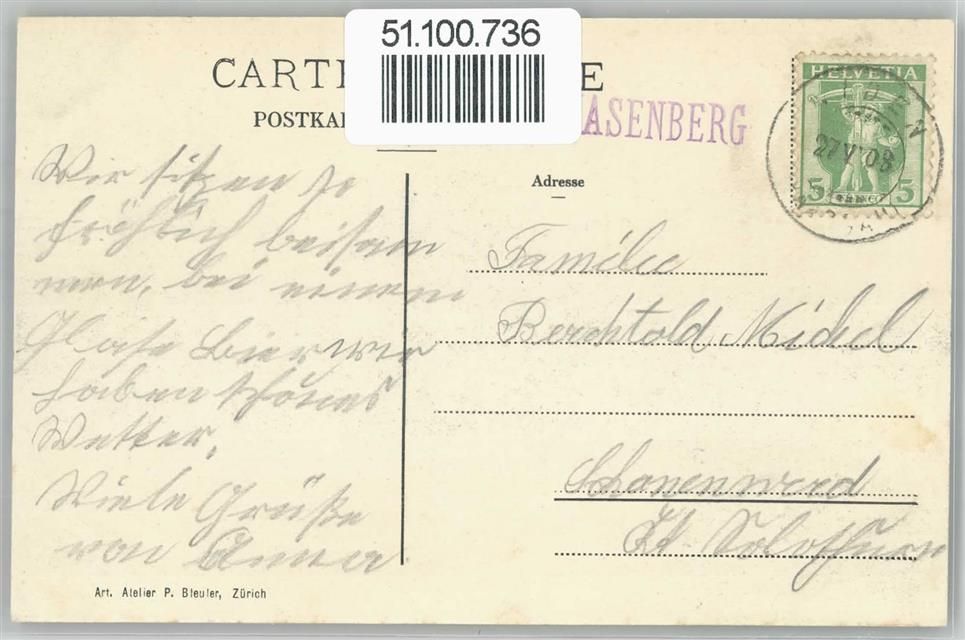 51.100.736
CARTE
POSTKA
ASENBERG
HELVETIA
27 V 08
5 5
Adresse
Wir sitzen so
fröhlich beisam
men, bei einem
Glase Bier wir
haben schönes
Wetter.
Viele Grüße
von Anna
Familie
Berchtold Michel
Schönenwerd
Kt. Solothurn
Art. Atelier P. Bleuler, Zürich